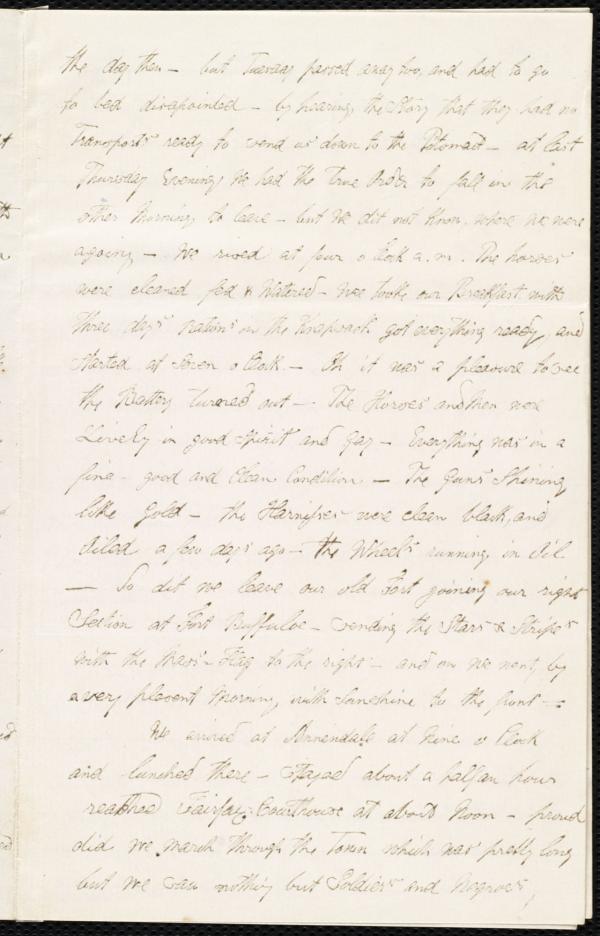 the day then — but Tuesday passed away too, and had to go
to bed disapointed — by hearing the Story that they had no
Transports ready to send us down to the Potomac — at last
Thursday Evening We had the true Order to fall in the
other Morning to leave — but We dit not Know, where we were
agoing — We rised at four o Clock a.m. The horses
were cleaned fed & Watered — We tooke our Breakfast, with
three days rations in the Knapsack got everything ready, and
started at Seven o Clock. — Oh it was a pleasure to see
the Battery turned out — The Horses and Men were
Lively in good spirit and gay — Everything was in a
fine — good and Clean Condition — The Guns Shining
like Gold — the Harnesses were clean black, and
Oiled a few days ago — the Wheels running in Oil
— So dit we leave our old Fort joining our right
Section at Fort Buffuloe — sending the Stars & Stripes
with the Mass — Flag to the right — and on we went, by
a very plesent Morning, with Sunshine to the front —
We arived at Annendale at Nine o Clock
and lunched there — Stayed about a half an hour
reatched Fairfax Courthouse at about Noon — proud
did we march through the Town which was pretty long
but we saw nothing but Soldiers and Negroes,